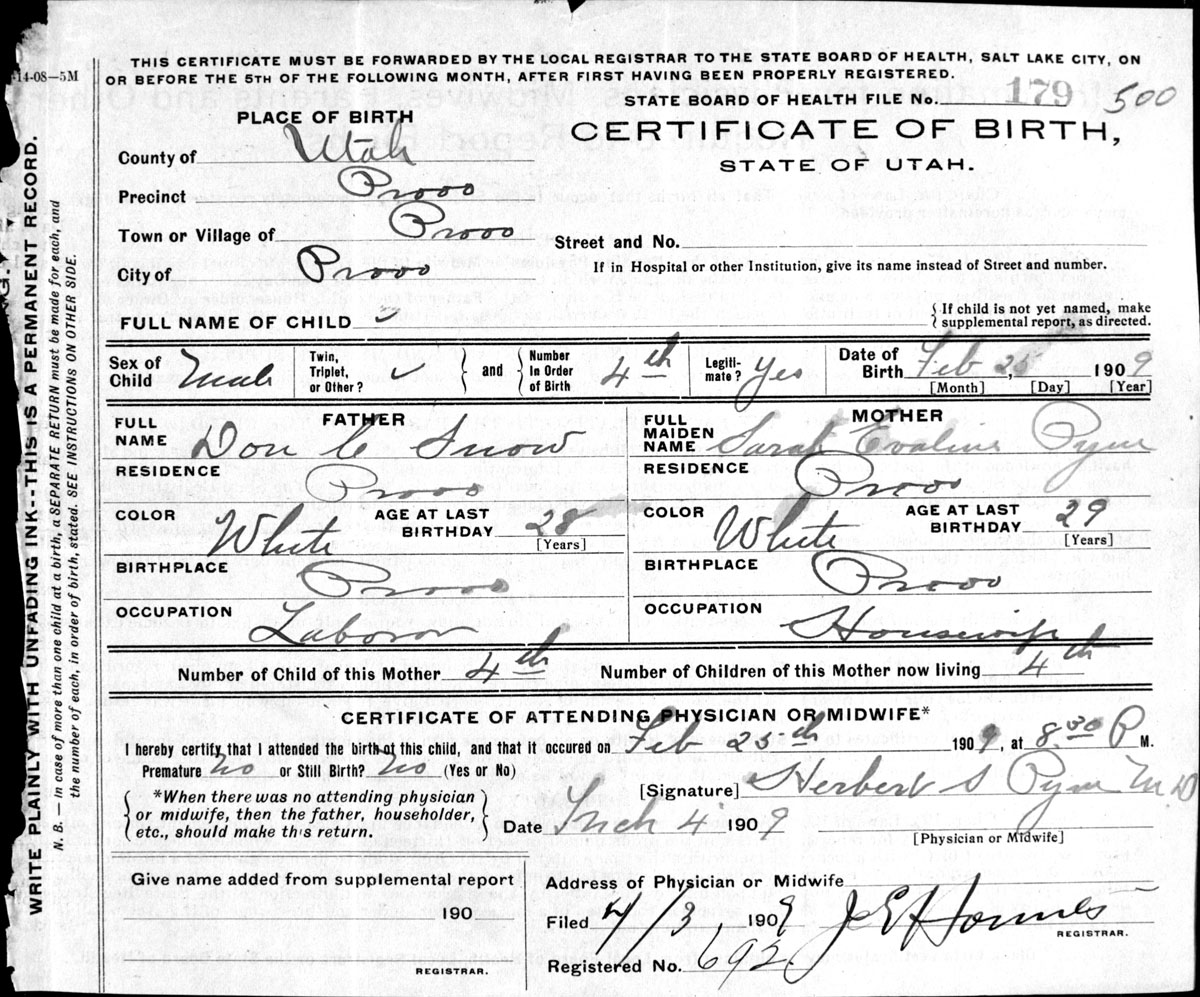 14-08—5M
THIS CERTIFICATE MUST BE FORWARDED BY THE LOCAL REGISTRAR TO THE STATE BOARD OF HEALTH, SALT LAKE CITY, ON
OR BEFORE THE 5TH OF THE FOLLOWING MONTH, AFTER FIRST HAVING BEEN PROPERLY REGISTERED.
STATE BOARD OF HEALTH FILE No. 179 500
PLACE OF BIRTH
CERTIFICATE OF BIRTH,
STATE OF UTAH.
County of Utah
Precinct Provo
Town or Village of Provo
Street and No.
City of Provo
If in Hospital or other Institution, give its name instead of Street and number.
FULL NAME OF CHILD
{If child is not yet named, make
supplemental report, as directed.
Sex of Child Male
Twin, Triplet, or Other? ✓
and
Number In Order of Birth 4th
Legitimate? Yes
Date of Birth Feb 25, 1909
[Month] [Day] [Year]
FATHER
FULL NAME Don C Snow
RESIDENCE Provo
COLOR White
AGE AT LAST BIRTHDAY 28
[Years]
BIRTHPLACE Provo
OCCUPATION Laboror
MOTHER
FULL MAIDEN NAME Sarah Evaline Pyne
RESIDENCE Provo
COLOR White
AGE AT LAST BIRTHDAY 29
[Years]
BIRTHPLACE Provo
OCCUPATION Housewife
Number of Child of this Mother 4th
Number of Children of this Mother now living 4th
CERTIFICATE OF ATTENDING PHYSICIAN OR MIDWIFE*
I hereby certify that I attended the birth of this child, and that it occured on Feb 25th 1909, at 8.30 P M.
Premature No or Still Birth? No (Yes or No)
{*When there was no attending physician
or midwife, then the father, householder,
etc., should make this return.}
[Signature] Herbert S Pyne M D
Date Mch 4 1909
[Physician or Midwife]
Give name added from supplemental report
190
REGISTRAR.
Address of Physician or Midwife
Filed 4/3, 1909 J E Hommes
REGISTRAR.
Registered No. 692
WRITE PLAINLY WITH UNFADING INK--THIS IS A PERMANENT RECORD.
N. B.— In case of more than one child at a birth, a SEPARATE RETURN must be made for each, and
the number of each, in order of birth, stated. SEE INSTRUCTIONS ON OTHER SIDE.